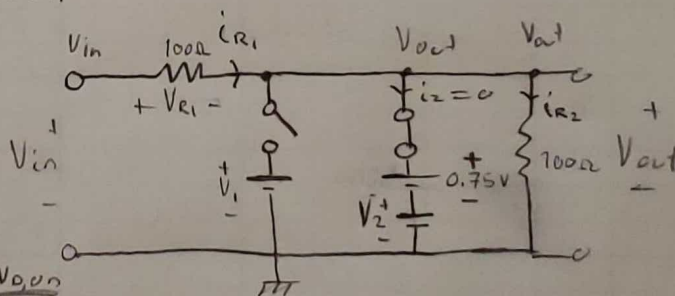 Vin 100Ω iR1 Vout Vout
+ VR1 - i2=0 iR2
+ Vin - + V1 - + 0.75V - 100Ω + Vout -
V2 + -
VD,on